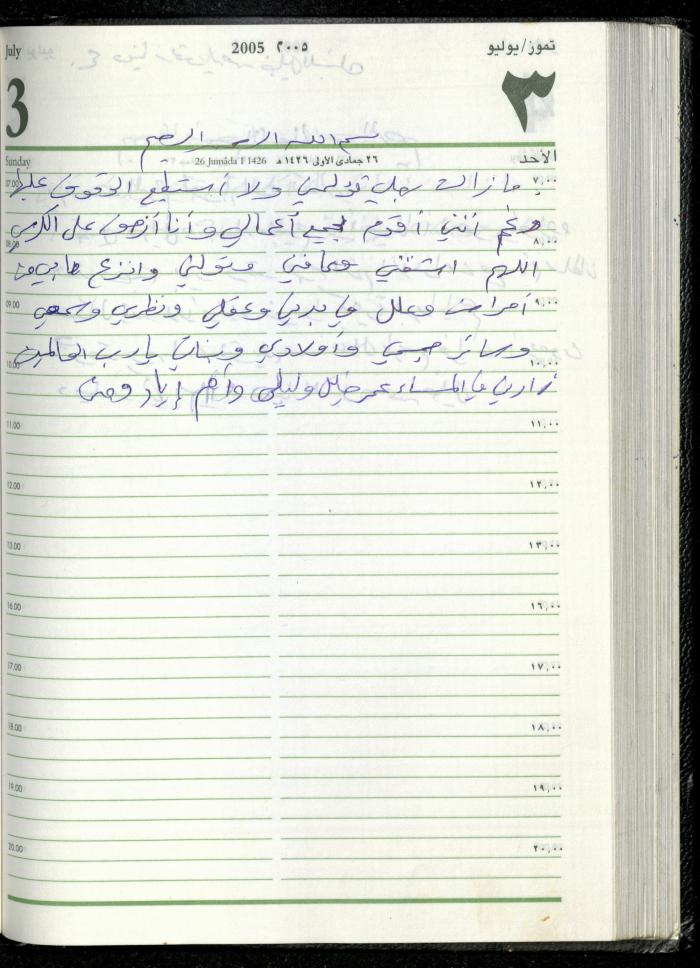 July 2005 ٢٠٠٥ تموز/يوليو
3 ٣
بسم الله الرحمن الرحيم
Sunday 26 Jumâda I 1426 ٢٦ جمادى الأولى ١٤٢٦ هـ الأحد
07.00 ما زالت رجلي تؤلمني ولا أستطيع الوقوف عليها ٧,٠٠
رغم أنني أقوم بجميع أعمالي وأنا أزحف على الكرسي
08.00 ٨,٠٠
اللهم اشفني وعافني وتولني وانزع ما بي من
09.00 أمراض وعلل في بدني وعقلي ونظري وسمعي ٩,٠٠
وسائر جسمي وأولادي وبناتي يا رب العالمين
10.00 ١٠,٠٠
زارني في المساء عمر خليل وليلى وأم إياد
11.00 ١١,٠٠
12.00 ١٢,٠٠
13.00 ١٣,٠٠
16.00 ١٦,٠٠
17.00 ١٧,٠٠
18.00 ١٨,٠٠
19.00 ١٩,٠٠
20.00 ٢٠,٠٠